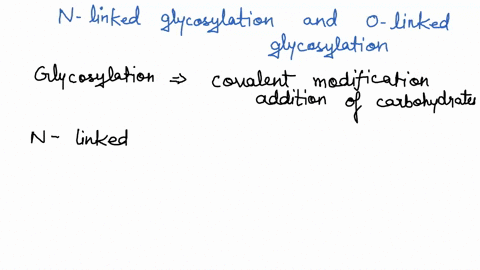 N-linked glycosylation and O-linked
glycosylation
Glycosylation ⇒ covalent modification
addition of carbohydrates
N- linked